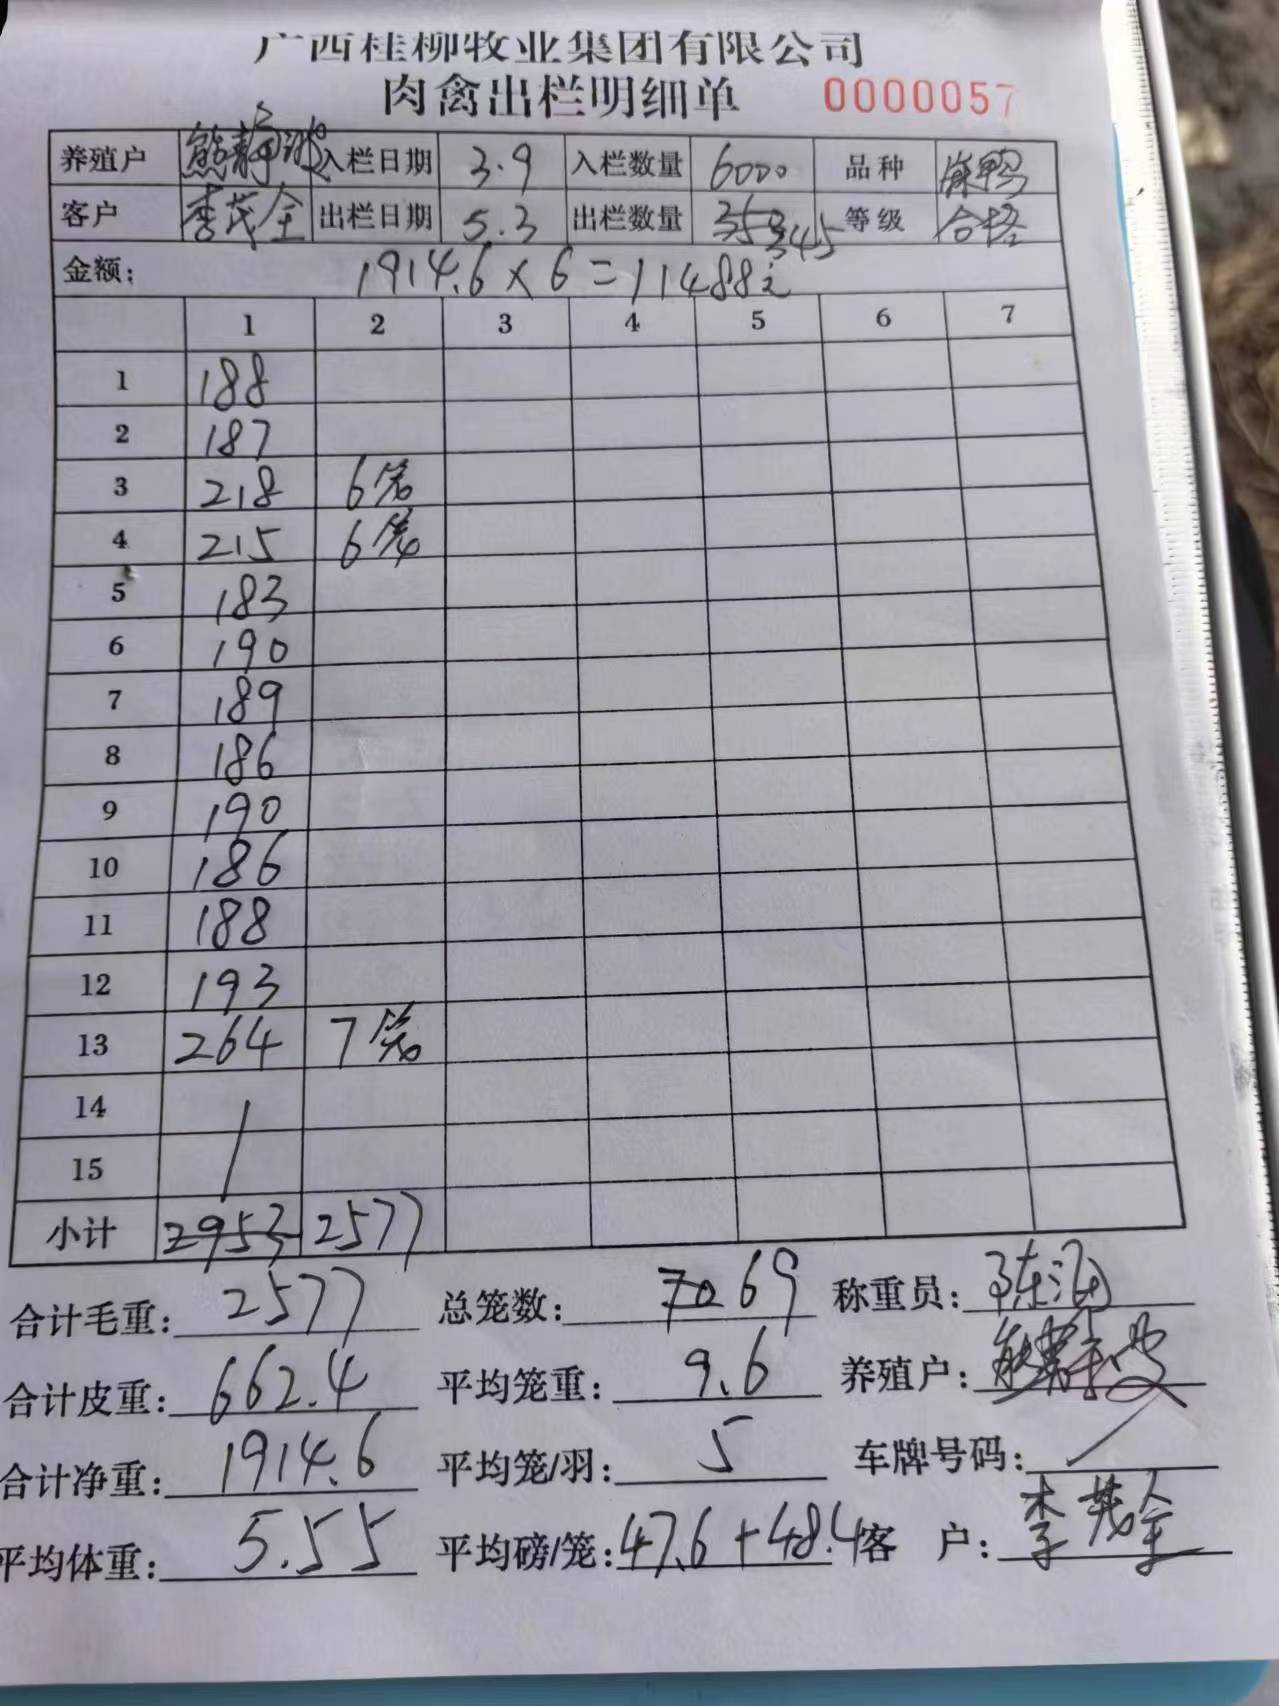 广西桂柳牧业集团有限公司
肉禽出栏明细单 0000057
养殖户 熊静波 入栏日期 3.9 入栏数量 6000 品种 麻鸭
客户 李茂全 出栏日期 5.3 出栏数量 345 等级 合格
金额: 1914.6×6=11488元
1 2 3 4 5 6 7
1 188
2 187
3 218 6笼
4 215 6笼
5 183
6 190
7 189
8 186
9 190
10 186
11 188
12 193
13 264 7笼
14
15
小计 2953 2577
合计毛重: 2577 总笼数: 70 69 称重员: 陈海
合计皮重: 662.4 平均笼重: 9.6 养殖户:
合计净重: 1914.6 平均笼/羽: 5 车牌号码: /
平均体重: 5.55 平均磅/笼: 47.6+48.4 客 户: 李茂全